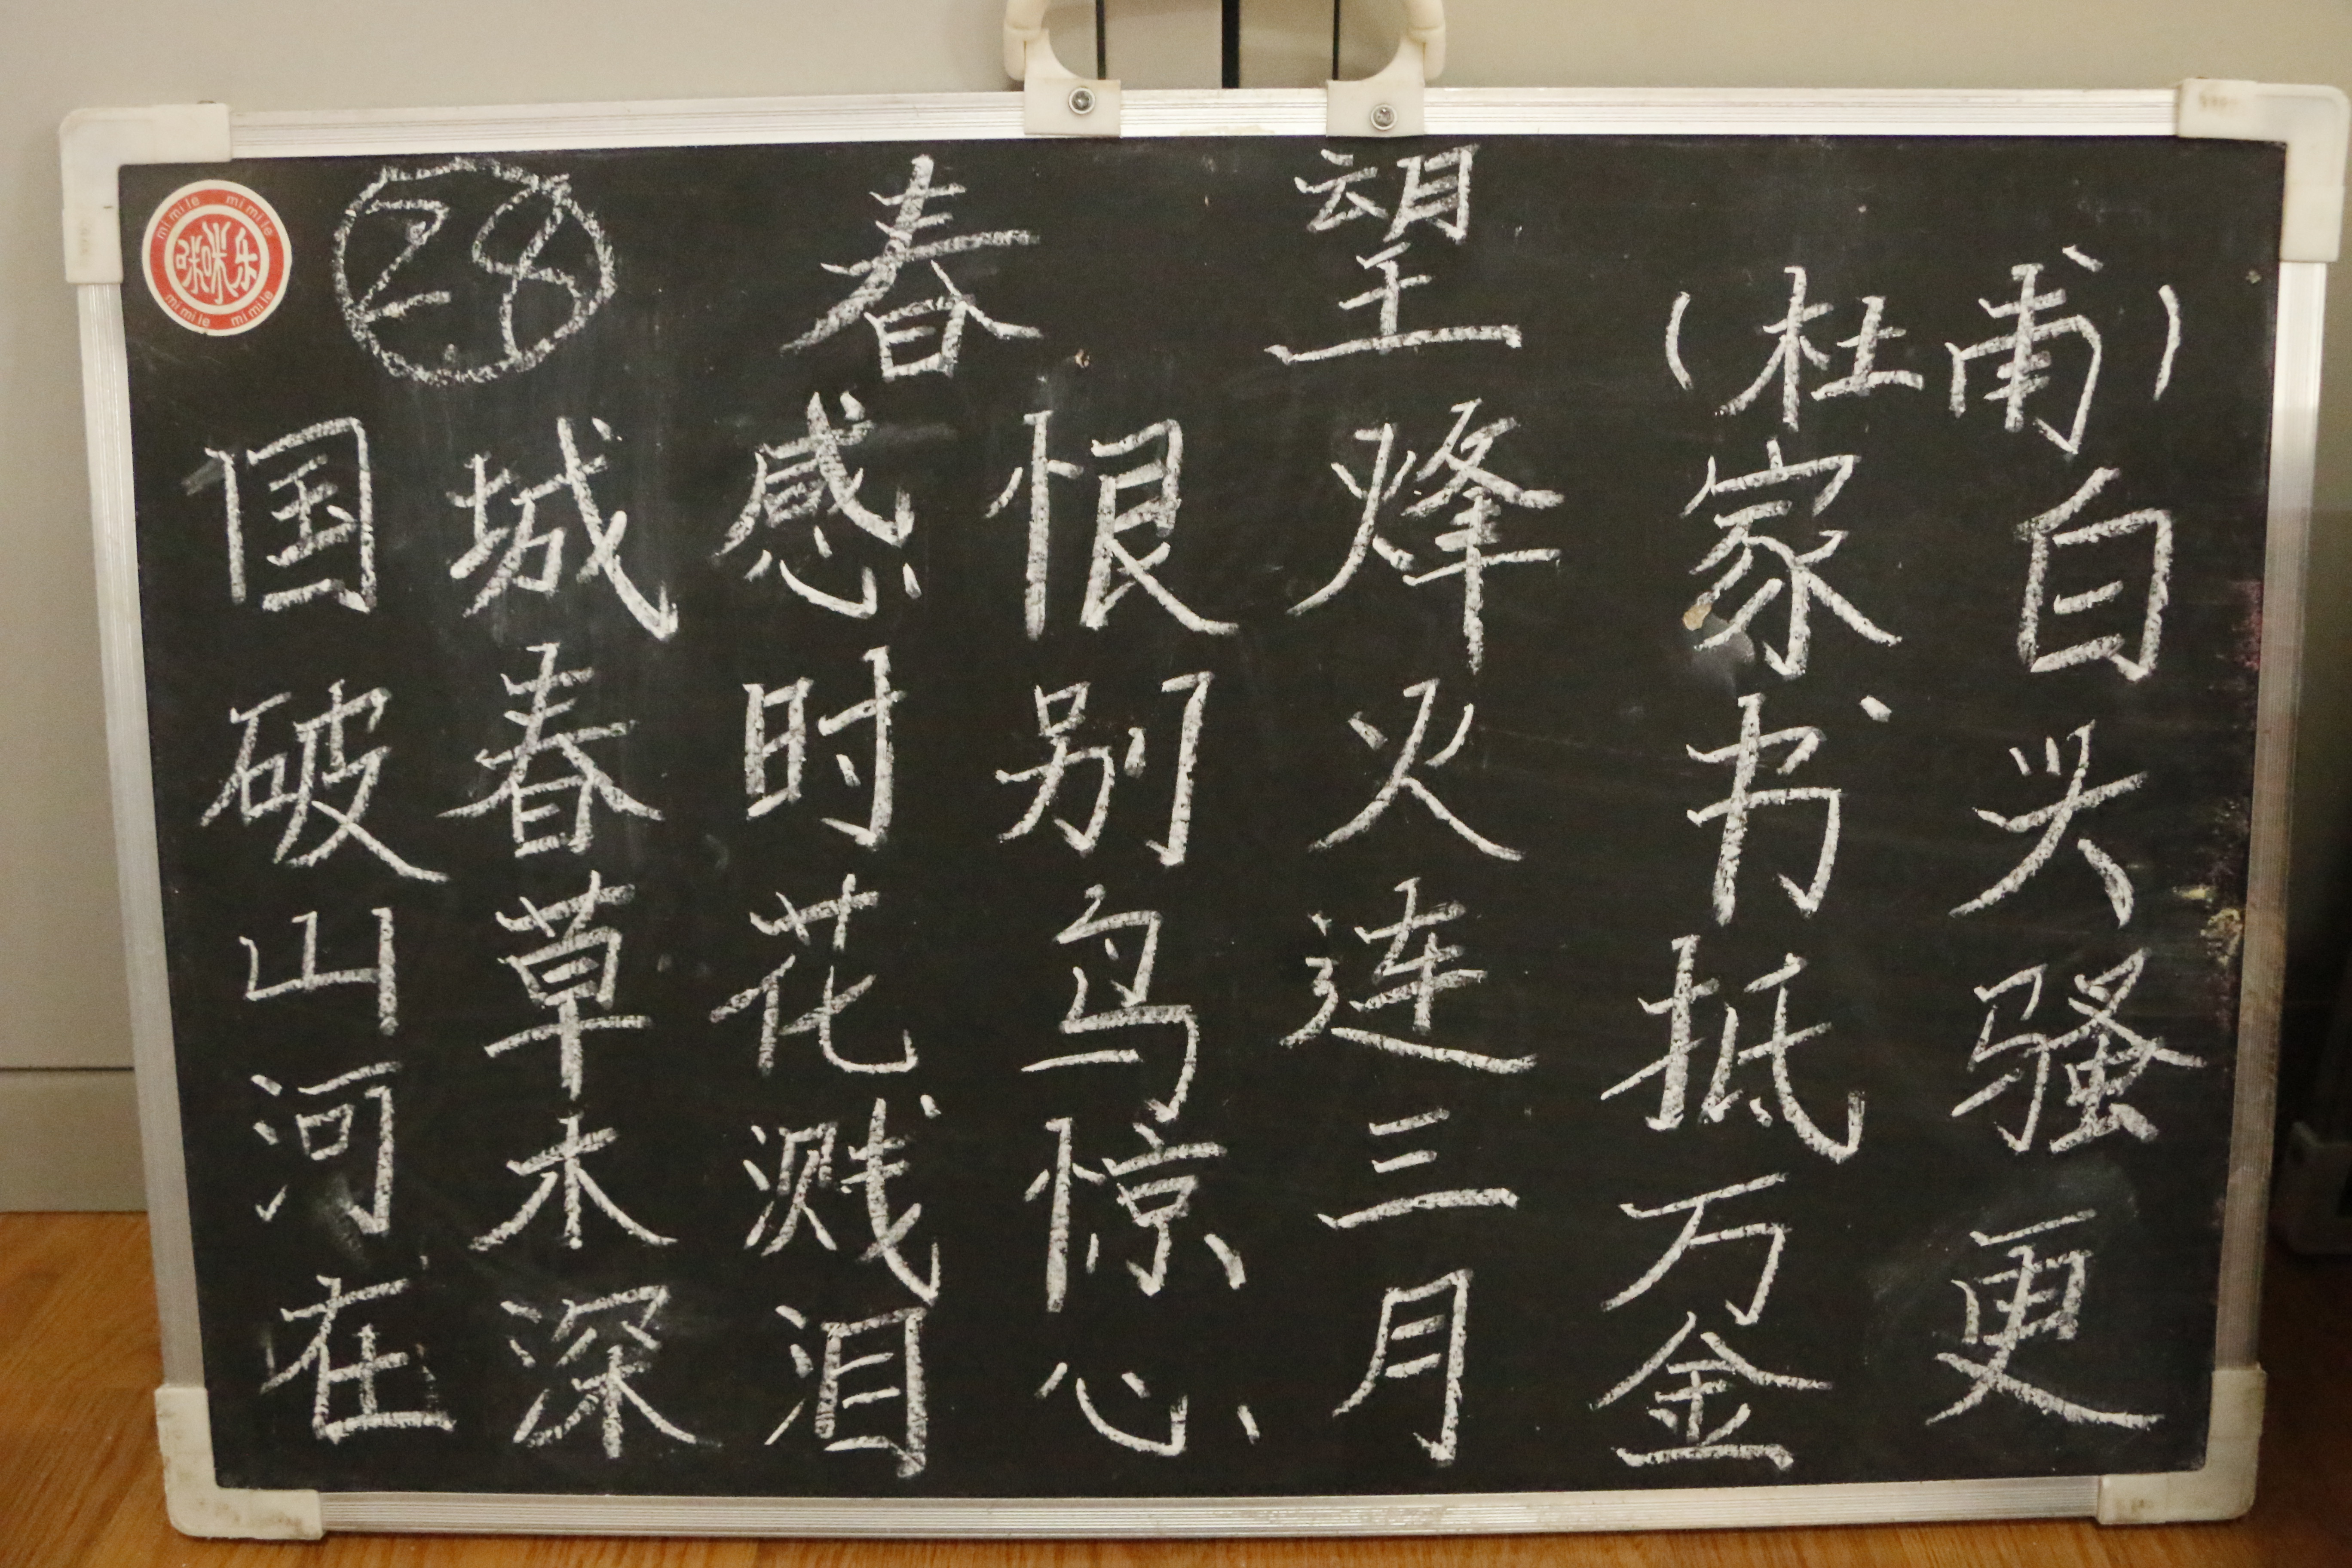 mi mi le mi mi le
咪咪乐
mi mi le mi mi le
28 春望
(杜甫)
国破山河在
城春草木深
感时花溅泪
恨别鸟惊心
烽火连三月
家书抵万金
白头骚更